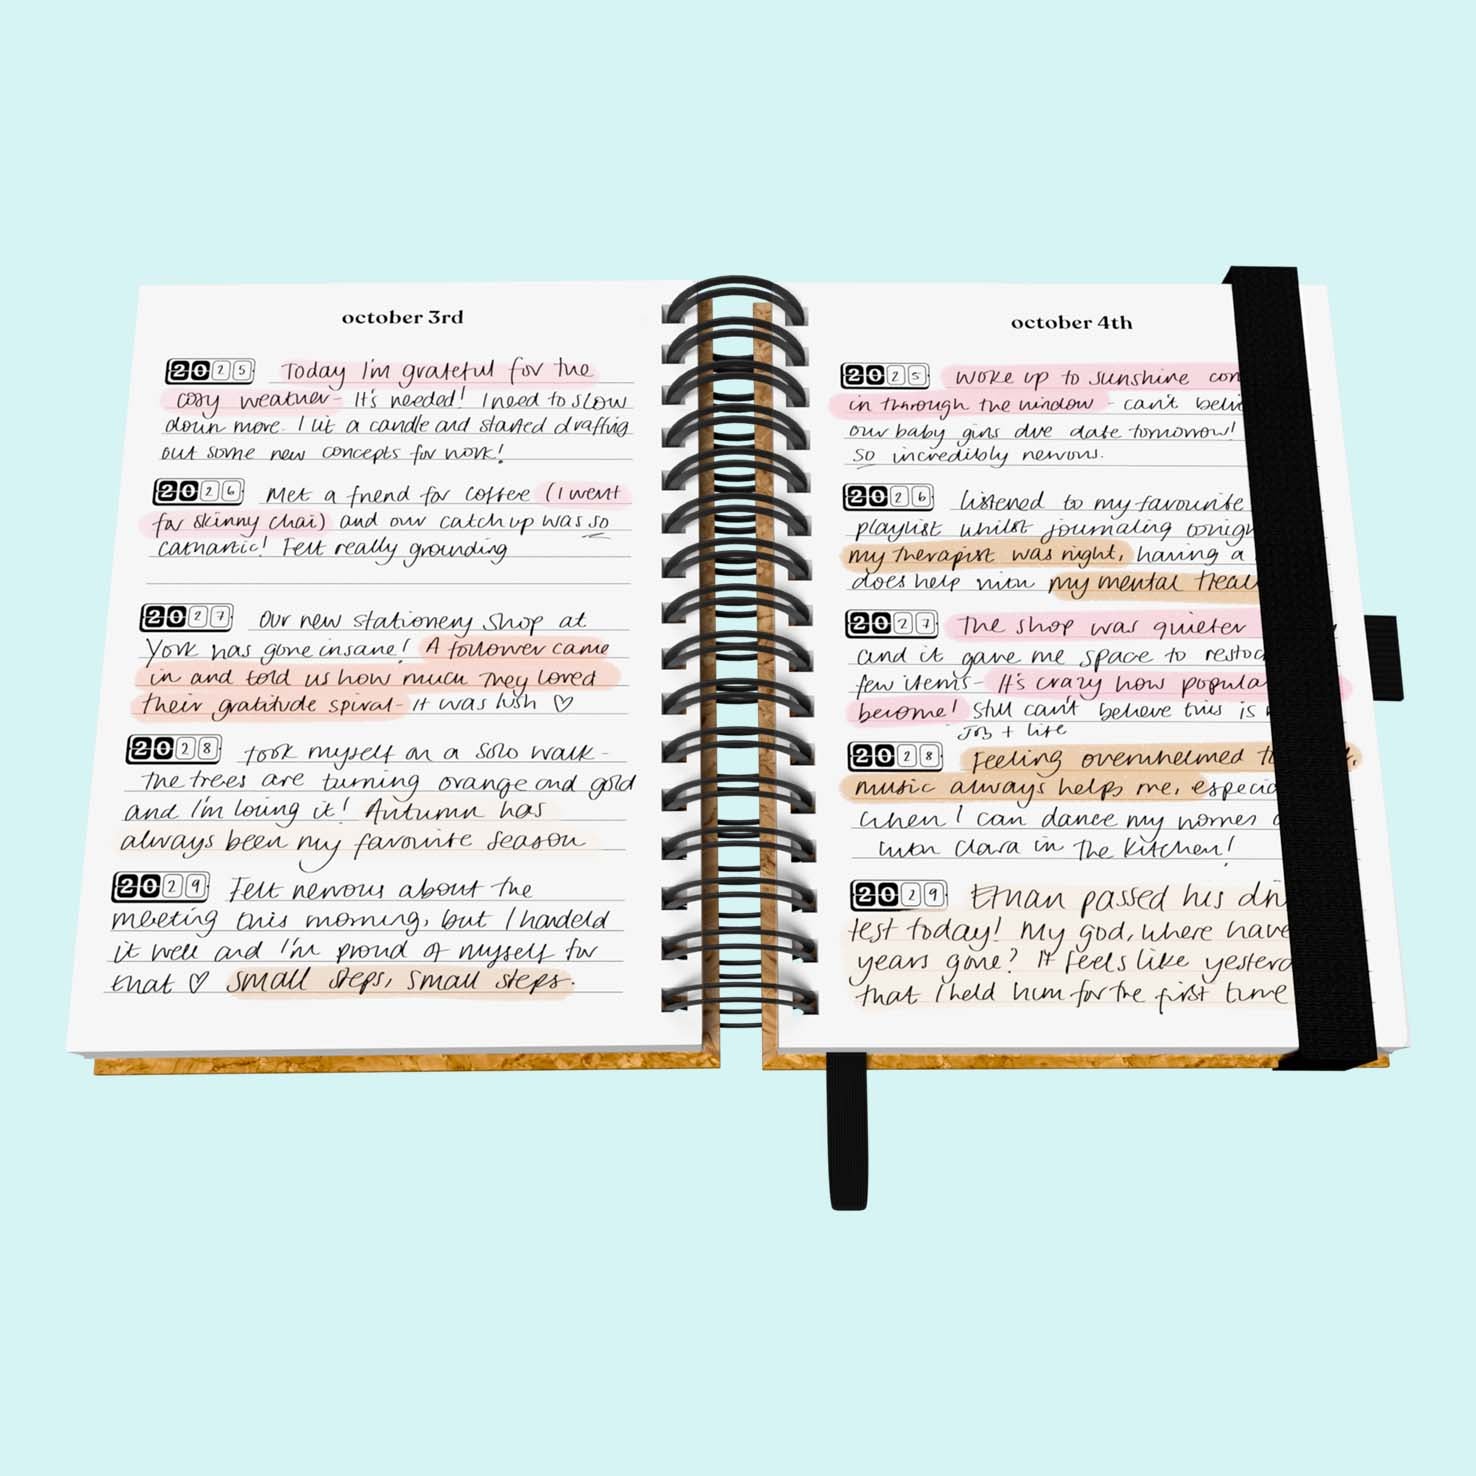 october 3rd
2025 Today I'm grateful for the
cosy weather- It's needed! I need to slow
down more. I lit a candle and started drafting
out some new concepts for work!
2026 Met a friend for coffee (I went
for skinny chai) and our catch up was so
cathartic! Felt really grounding
2027 Our new stationery shop at
York has gone insane! A follower came
in and told us how much they loved
their gratitude spiral- it was lush ♡
2028 Took myself on a solo walk-
The trees are turning orange and gold
and I'm loving it! Autumn has
always been my favourite season
2029 Felt nervous about the
meeting this morning, but I handeld
it well and I'm proud of myself for
that ♡ small steps, small steps.
october 4th
2025 Woke up to sunshine
in through the window - can't
our baby girls due date tomorrow!
so incredibly nervous.
2026 Listened to my favourite
playlist whilst journaling
my therapist was right, having a
does help with my mental
2027 The shop was quieter
and it gave me space to
few items- It's crazy how
become! Still can't believe this is
Job + life
2028 Feeling overwhelmed
music always helps me,
when I can dance my worries
with Clara in the kitchen!
2029 Ethan passed his
test today! My god, where have
years gone? It feels like
that I held him for the first time